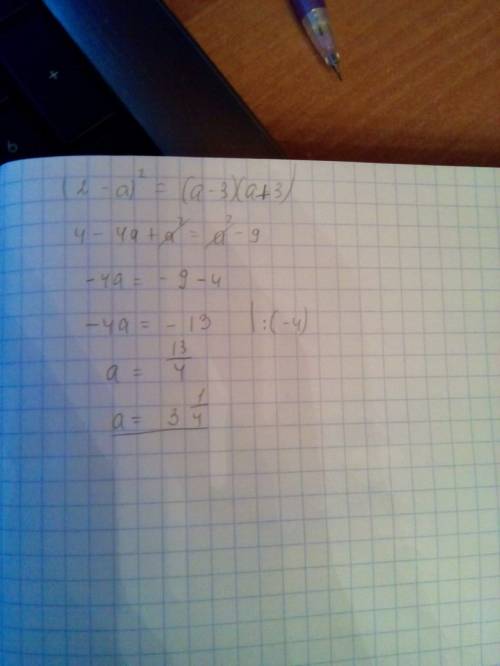 (2 - a)² = (a-3)(a+3)
4 - 4a + a² = a² - 9
-4a = -9 - 4
-4a = -13 |:(-4)
a = 13/4
a = 3 1/4